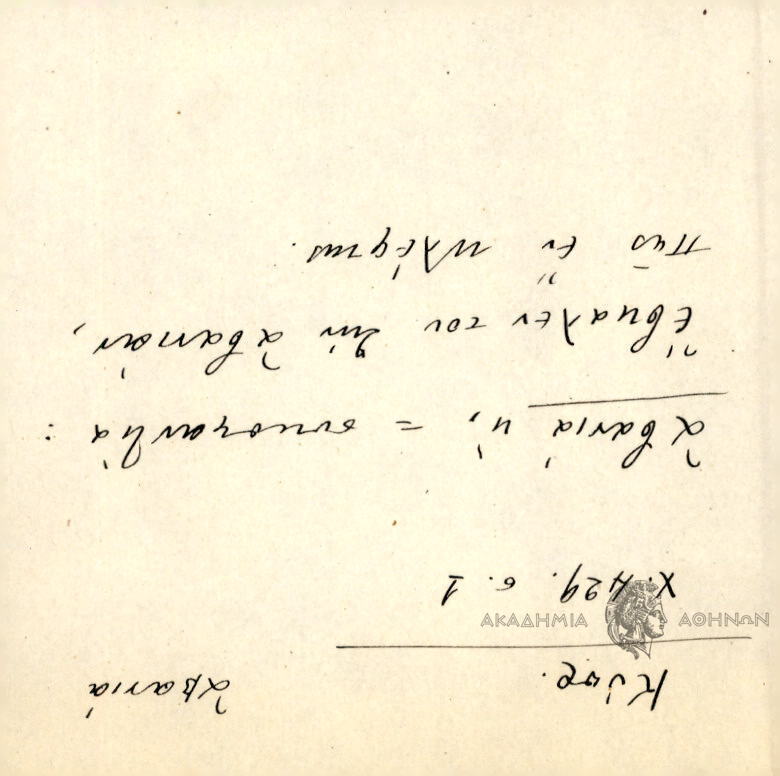 Κύπρ. ἀβανιά
Χ. 429. σ. 1
ΑΚΑΔΗΜΙΑ ΑΘΗΝΩΝ
ἀβανιά ἡ, = συκοφαντία:
Ἔβκαλεν του μιὰν ἀβανιάν,
πῶς ἔν κλέφτης.